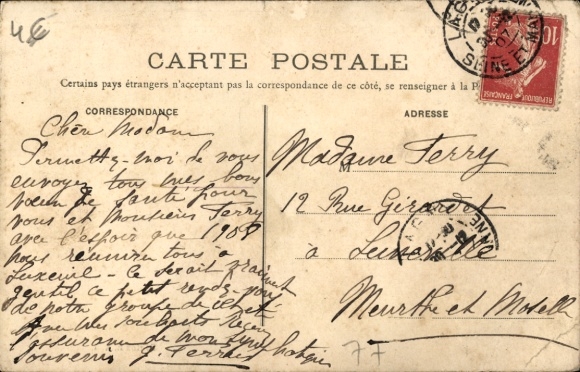 4€
CARTE POSTALE
Certains pays étrangers n'acceptant pas la correspondance de ce côté, se renseigner à la
CORRESPONDANCE
ADRESSE
Chère Madame
Permettez-moi de vous
envoyer tous mes bons
vœux de santé pour
vous et Monsieur Ferry
avec l'espoir que 1908
nous réunira tous à
Luxeuil - ce serait vraiment
gentil ce petit rendez-vous
de notre groupe de
avec mes souhaits
l'assurance de mon
souvenir
Madame Ferry
12 Rue Girardet
à Lunéville
Meurthe et Moselle
77
10
REPUBLIQUE FRANÇAISE
SEINE ET MARNE